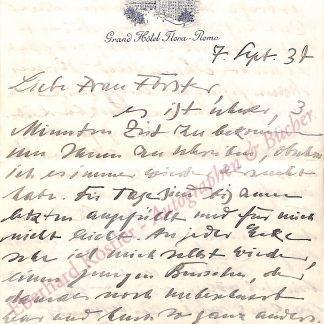 Grand Hôtel Flora-Roma
7. Sept. 38
Liebe Frau Förster,
es ist schwer, 3
Minuten Zeit zu bekommen
um Ihnen zu schreiben, obschon
ich es immer wieder versucht
habe. Die Tage sind bis zum
letzten angefüllt und für mich
nicht leicht. An jeder Ecke
sehe ich mich selbst wieder,
einen jungen Burschen, der
damals noch unbekannt
war und auch so ganz anders
Eberhard Köstler - Autographen & Bücher